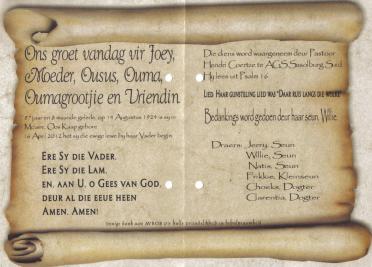 Ons groet vandag vir Joey,
Moeder, Ousus, Ouma,
Oumagrootjie en Vriendin
87 jaar en 8 maande gelede, op 14 Augustus 1924 is sy in
Oos Kaap gebore
16 April 2012 het sy die ewige lewe by haar Vader begin
Ere Sy die Vader,
Ere Sy die Lam,
en, aan U, o Gees van God,
deur al die eeue heen
Amen, Amen!
Die diens word waargeneem deur Pastoor
Hendri Coertze te AGS Sasolburg Suid
Hy lees uit Psalm 16
Lied: Haar gunsteling lied was "Daar ruis langs die wolke"
Bedankings word gedoen deur haar seun, Willie.
Draers: Jerry, Seun
Willie, Seun
Natis, Seun
Frikkie, Kleinseun
Choeks, Dogter
Clarentia, Dogter
Innige dank aan AVBOB vir hulle